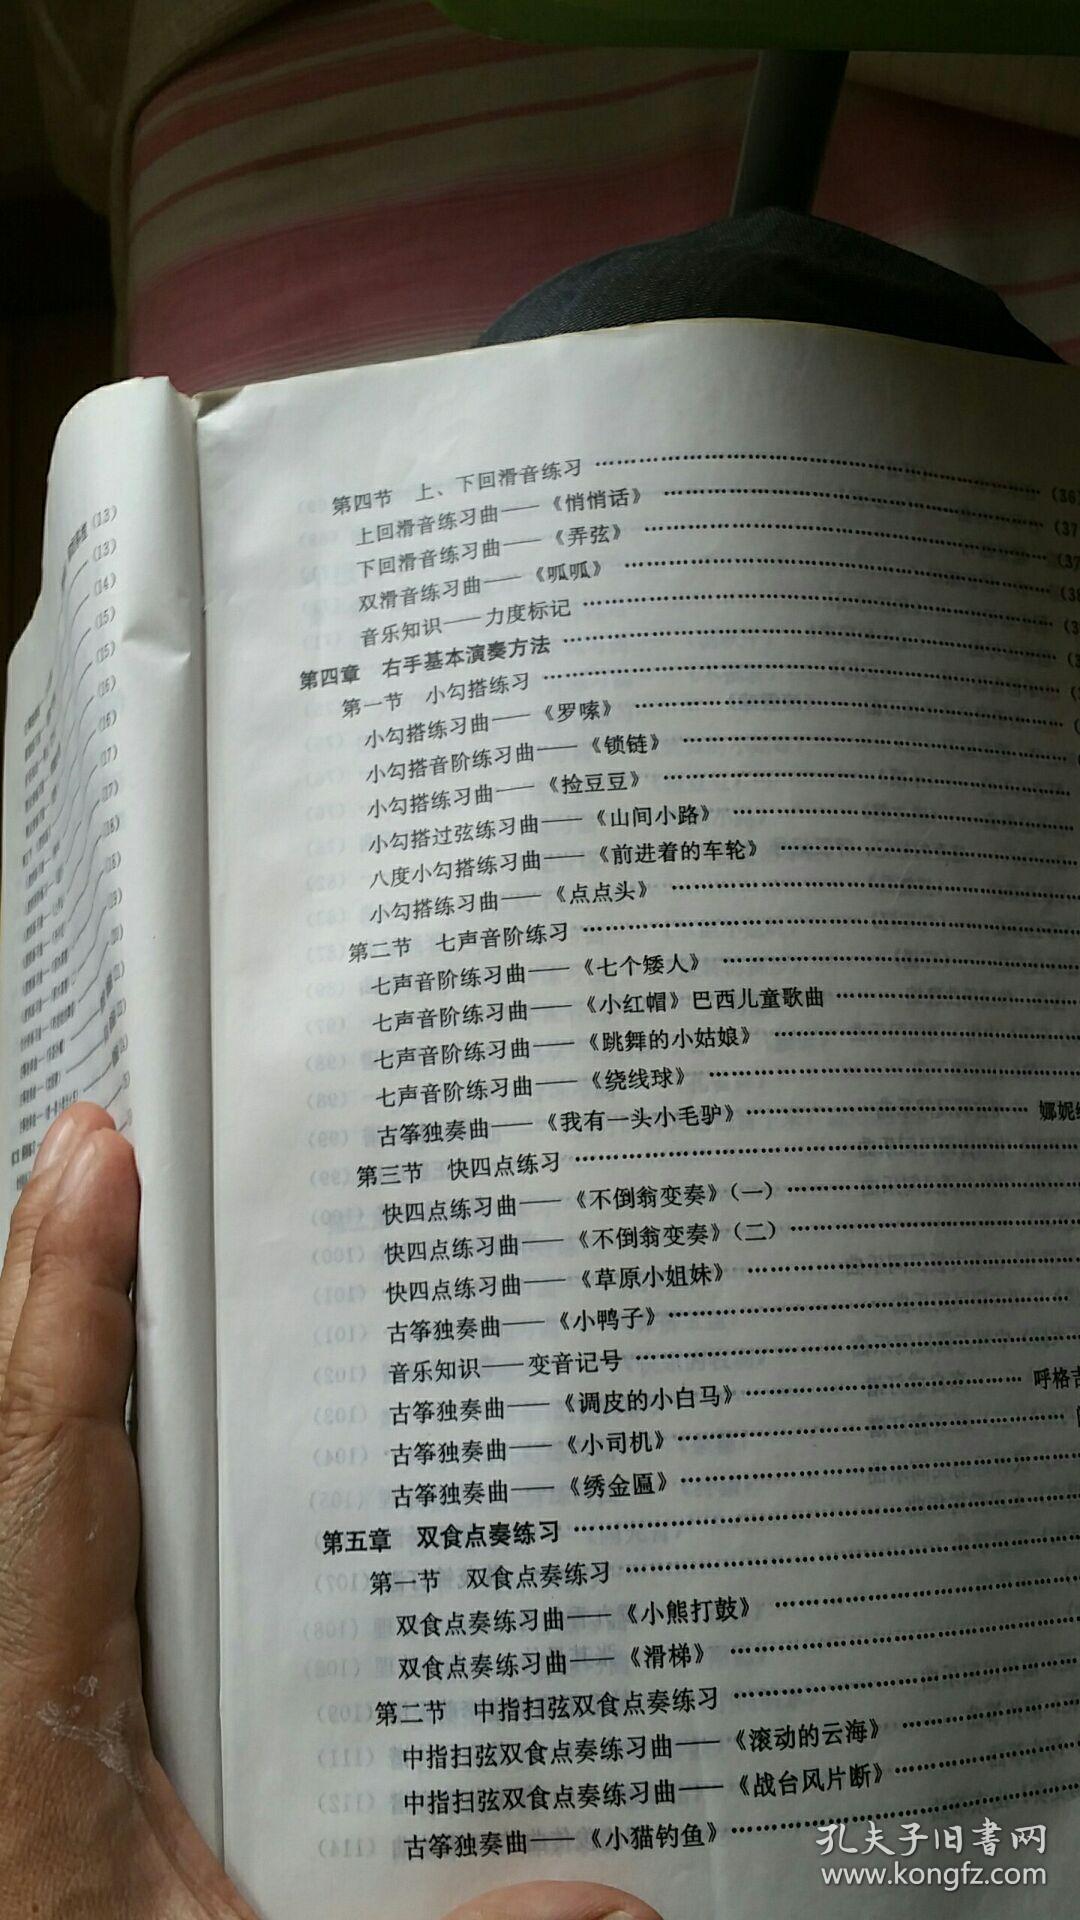 第四节　上、下回滑音练习
上回滑音练习曲——《悄悄话》
下回滑音练习曲——《弄弦》
双滑音练习曲——《呱呱》
音乐知识——力度标记
第四章　右手基本演奏方法
第一节　小勾搭练习
小勾搭练习曲——《罗嗦》
小勾搭音阶练习曲——《锁链》
小勾搭练习曲——《捡豆豆》
小勾搭过弦练习曲——《山间小路》
八度小勾搭练习曲——《前进着的车轮》
小勾搭练习曲——《点点头》
第二节　七声音阶练习
七声音阶练习曲——《七个矮人》
七声音阶练习曲——《小红帽》巴西儿童歌曲
七声音阶练习曲——《跳舞的小姑娘》
七声音阶练习曲——《绕线球》
古筝独奏曲——《我有一头小毛驴》 娜妮
第三节　快四点练习
快四点练习曲——《不倒翁变奏》（一）
快四点练习曲——《不倒翁变奏》（二）
快四点练习曲——《草原小姐妹》
古筝独奏曲——《小鸭子》
音乐知识——变音记号
古筝独奏曲——《调皮的小白马》 呼格吉
古筝独奏曲——《小司机》
古筝独奏曲——《绣金匾》
第五章　双食点奏练习
第一节　双食点奏练习
双食点奏练习曲——《小熊打鼓》
双食点奏练习曲——《滑梯》
第二节　中指扫弦双食点奏练习
中指扫弦双食点奏练习曲——《滚动的云海》
中指扫弦双食点奏练习曲——《战台风片断》
古筝独奏曲——《小猫钓鱼》
孔夫子旧書网
www.kongfz.com